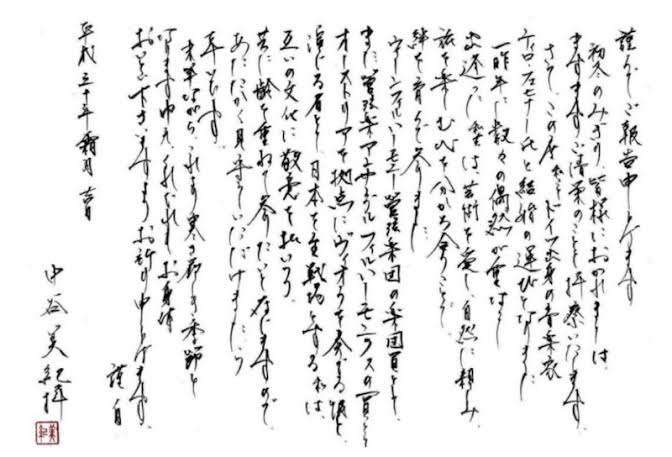 謹んでご報告申し上げます
初冬のみぎり、皆様におかれましては、
ますますご清栄のことと拝察いたします。
さて、この度わたくしドイツ出身の音楽家
ティロ・フェヒナー氏と結婚の運びとなりました
一昨年に数々の偶然が重なり
出逢った私達は、芸術を愛し、自然に親しみ、
旅を楽しむ心を分かち合うことで
絆を育んで参りました。
ウィーンフィルハーモニー管弦楽団の楽団員として、
また管弦楽アンサンブルフィルハーモニクスの一員として
オーストリアを拠点にヴィオラを奏でる彼と
演じる者として日本を主戦場とする私は、
互いの文化に敬意を払いつつ
共に齢を重ねて参りたいと存じますので、
あたたかく見守っていただけましたら
幸いです。
末筆ながら、これより寒さ厳しき季節と
なりますゆえ、くれぐれもお身体
おいとい下さいますようお祈り申し上げます。
謹白
平成三十年霜月吉日
中谷美紀拝